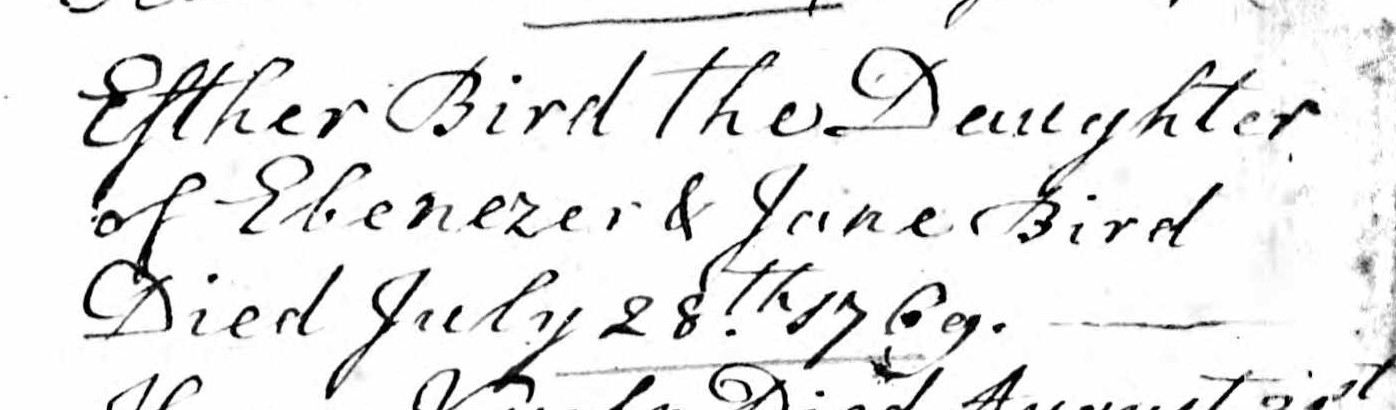 Esther Bird the Daughter
of Ebenezer & Jane Bird
Died July 28.th 1769.
Died August 21st